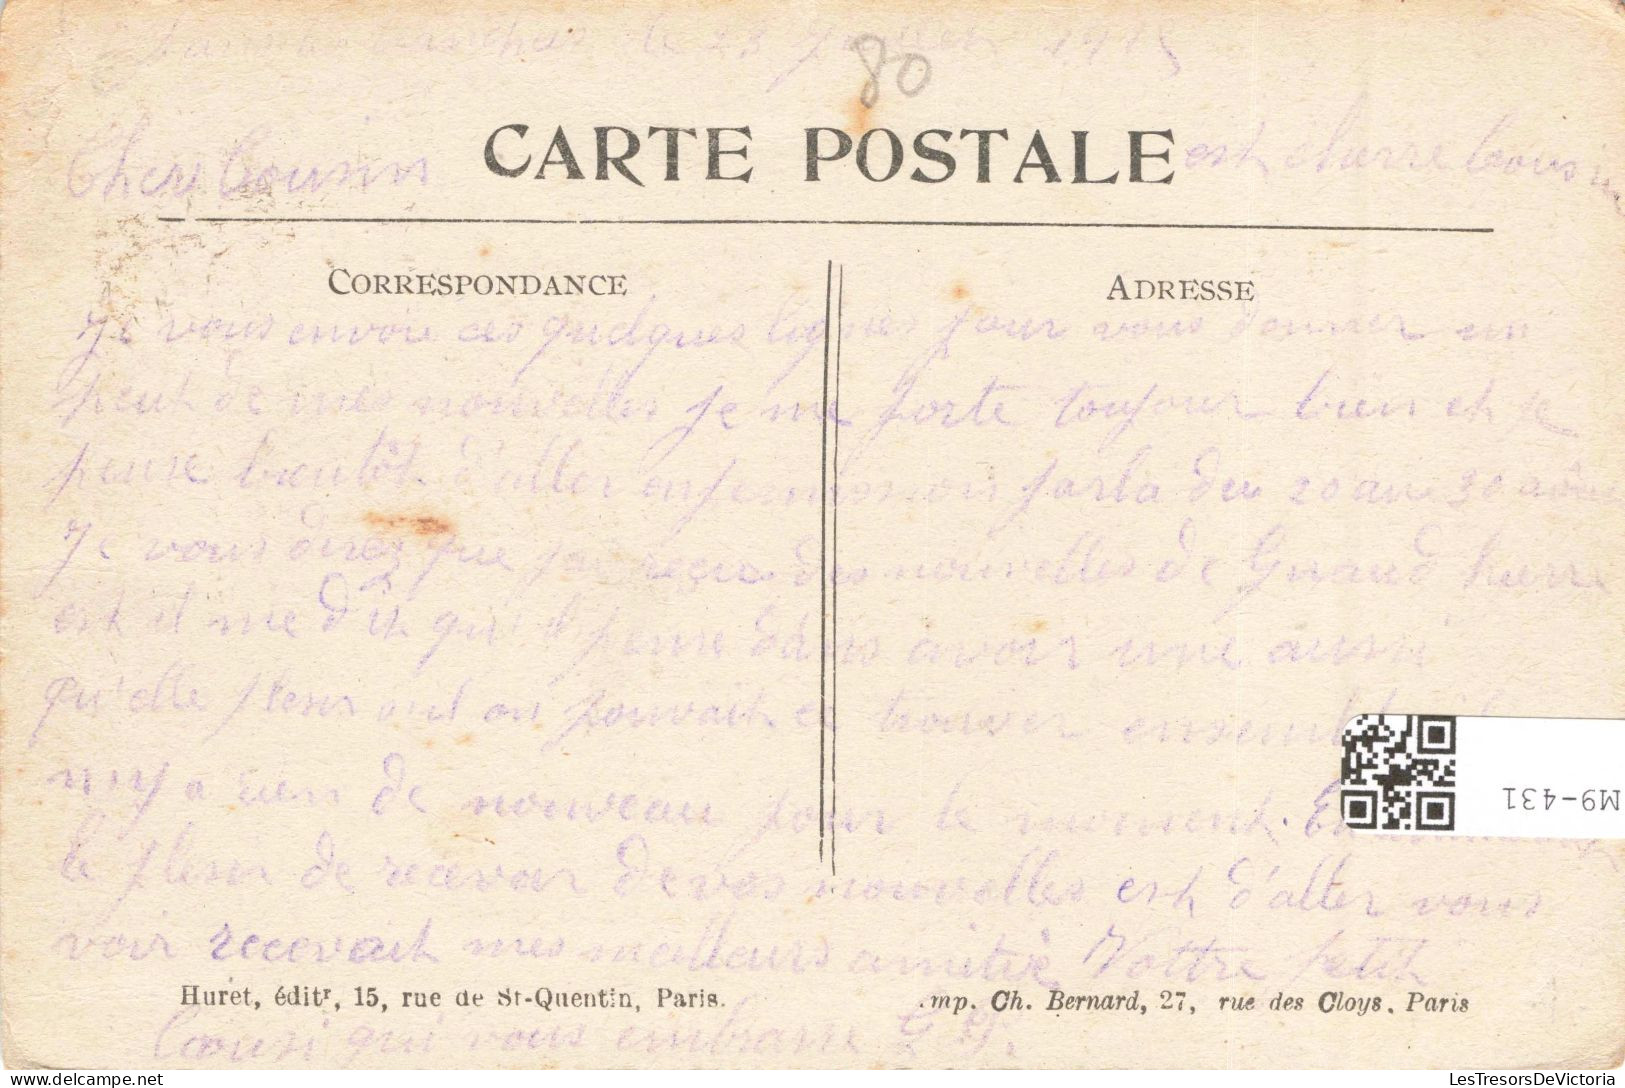 le 23 1915
80
Cher Cousin
CARTE POSTALE
est Cousin
CORRESPONDANCE
ADRESSE
Je vous envoie ces quelques lignes pour vous donner un
peut de mes nouvelles je me porte toujour bien et je
pense bientôt d'aller en permission par la du 20 au 30
Je vous direz que j'ai reçu des nouvelles de
est il me dit qu'il pense dans avoir une aussi
qu'elle plesir on pouvait ce trouver
n'y a rien de nouveau pour le moment. En
le plesir de recevoir de vos nouvelles est d'aller vous
voir recevait mes meilleurs amitié Vottre petit
Cousi qui vous embrasse
Huret, éditr, 15, rue de St-Quentin, Paris.
mp. Ch. Bernard, 27, rue des Cloys. Paris
M9-431
LesTresorsDeVictoria